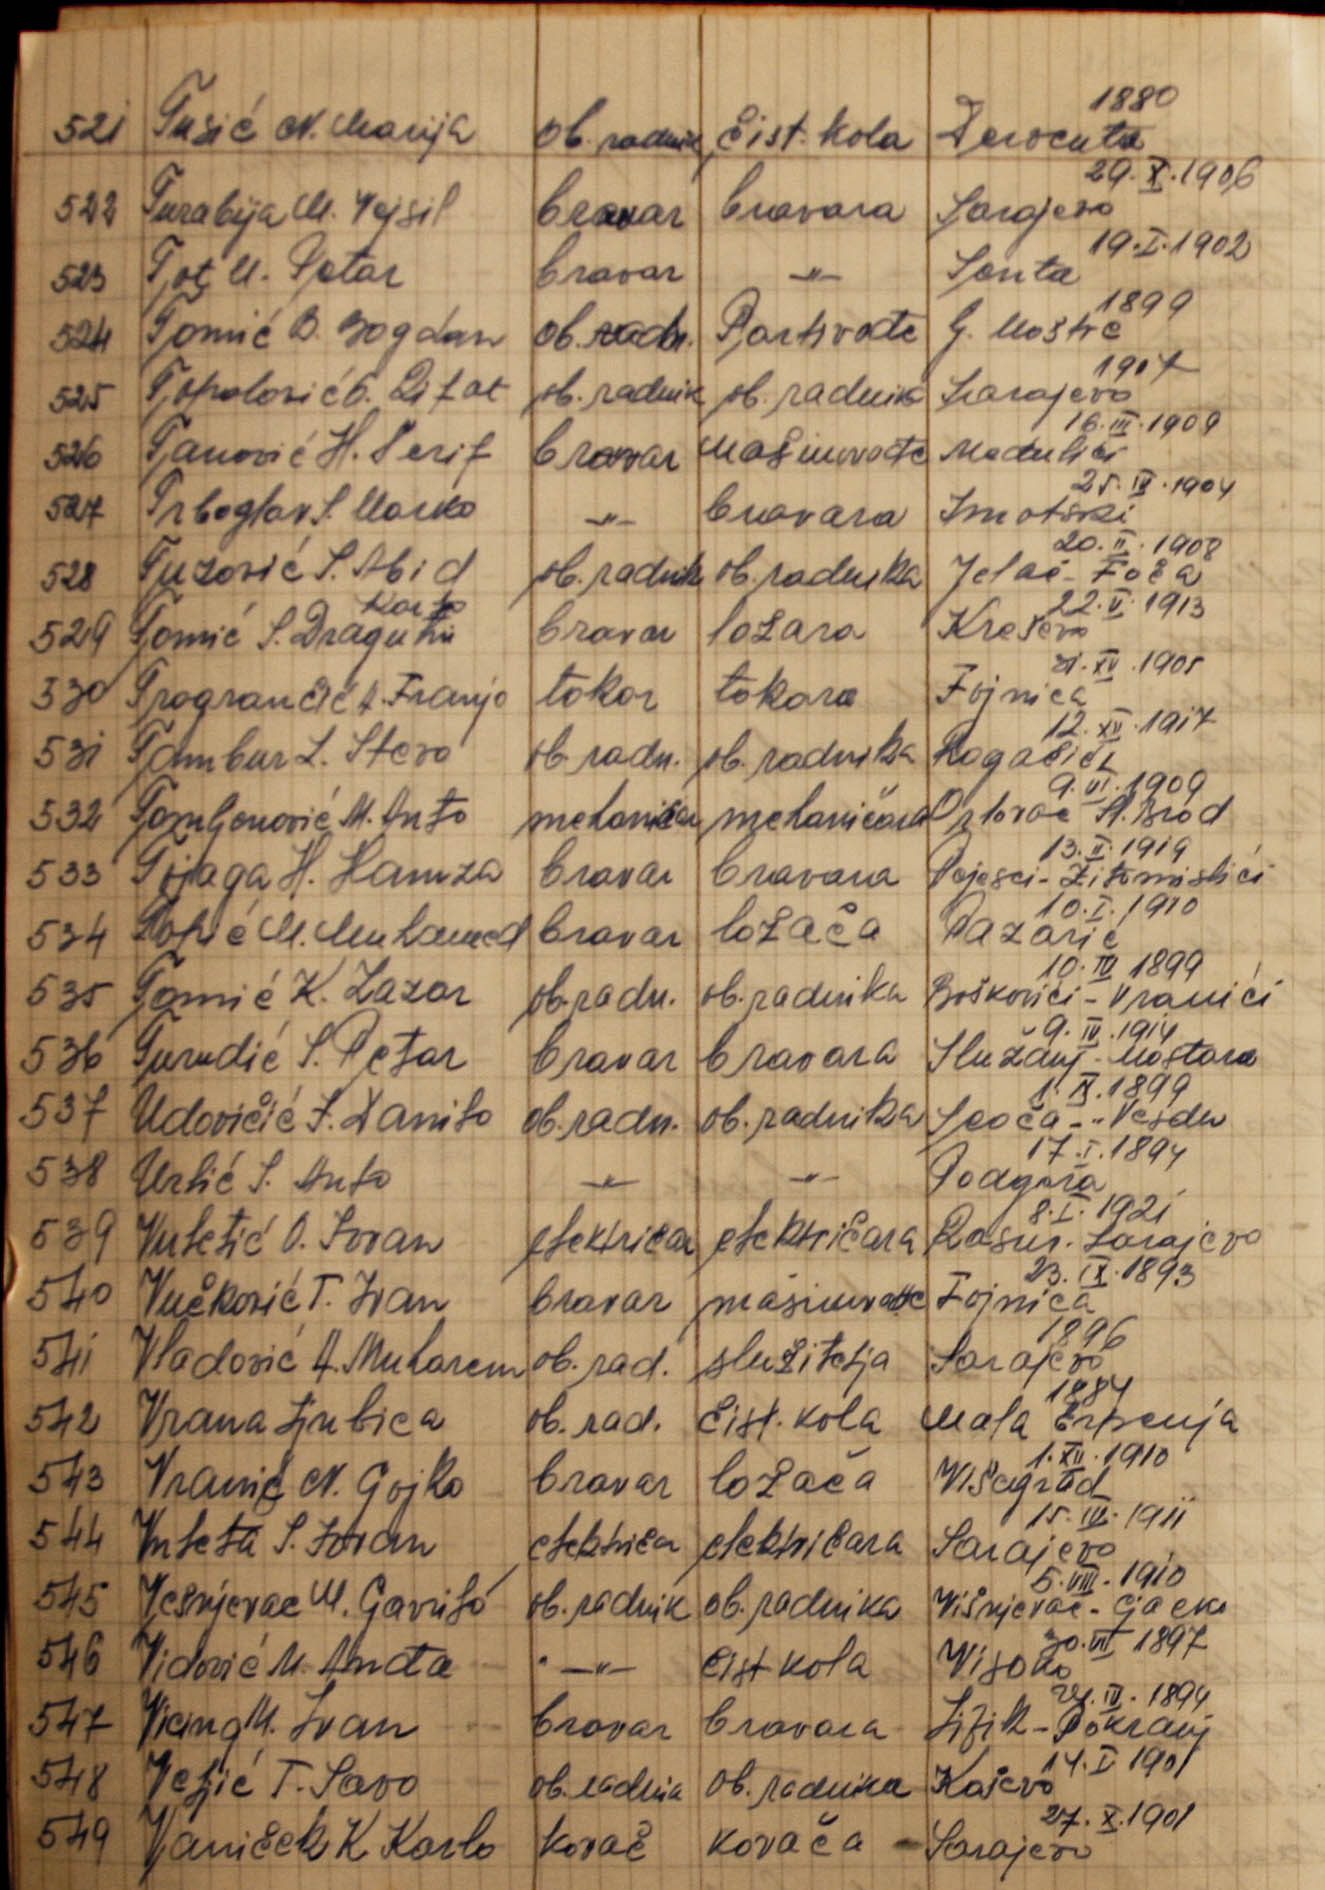 1880
521 Tusić N. Marija ob. radnik čist. kola Derventa
29.X.1906
522 Turabija M. Vejsil bravar bravara Sarajevo
19.I.1902
523 Tot M. Petar bravar -"- Sonta
1899
524 Tomić B. Bogdan ob. radn. G. Moštre
1907
525 ob. radnik ob. radnika Sarajevo
16.III.1909
526 Tanović H. Šerif bravar mašinovođe
25.IV.1904
527 Trboglav S. Marko -"- bravara Imotski
20.II.1908
528 Tuzović S. Abid ob. radnik ob. radnika Jeleč - Foča
Karlo 22.V.1913
529 Tomić S. Dragutin bravar ložara Kreševo
1905
530 Trogrančić A. Franjo tokar tokara Fojnica
1917
531 Tambur L. Stevo ob. radn. ob. radnika Rogačići
9.VI.1909
532 Tomljenović M. Anto mehaničar mehaničara Sl. Brod
13.II.1919
533 Tojaga H. Hamza bravar bravara Žitomislići
10.I.1910
534 M. Muhamed bravar ložača Pazarić
10.IV 1899
535 Tomić K. Lazar ob. radn. ob. radnika Boškovići - Vranići
9.IV.1914
536 Turudić S. Petar bravar bravara Služanj - Mostara
1.IX.1899
537 Udovičić J. Danilo ob. radn. ob. radnika Seoča -
17.I.1894
538 Urlić S. Anto -"- -"- Podgora
8.I.1921
539 Vuletić O. Jovan električar električara Sarajevo
23.IX.1893
540 Vučković T. Ivan bravar mašinovođe Fojnica
1896
541 Vladović A. Muharem ob. rad. služitelja Sarajevo
1884
542 Vrana Ljubica ob. rad. čist. kola Mala Erpenja
1.XII.1910
543 Vranić N. Gojko bravar ložača Višegrad
15.IV.1911
544 Vuleta S. Jovan električar električara Sarajevo
5.VIII.1910
545 Višnjevac M. Gavrilo ob. radnik ob. radnika Višnjevac - Gacko
30.VII 1897
546 Vidović M. Anđa -"- čist kola Visoko
IV. 1894
547 M. Ivan bravar bravara
14.I 1901
548 T. Savo ob. radnik ob. radnika Koševo
27.X.1901
549 Vaniček K Karlo kovač kovača - Sarajevo